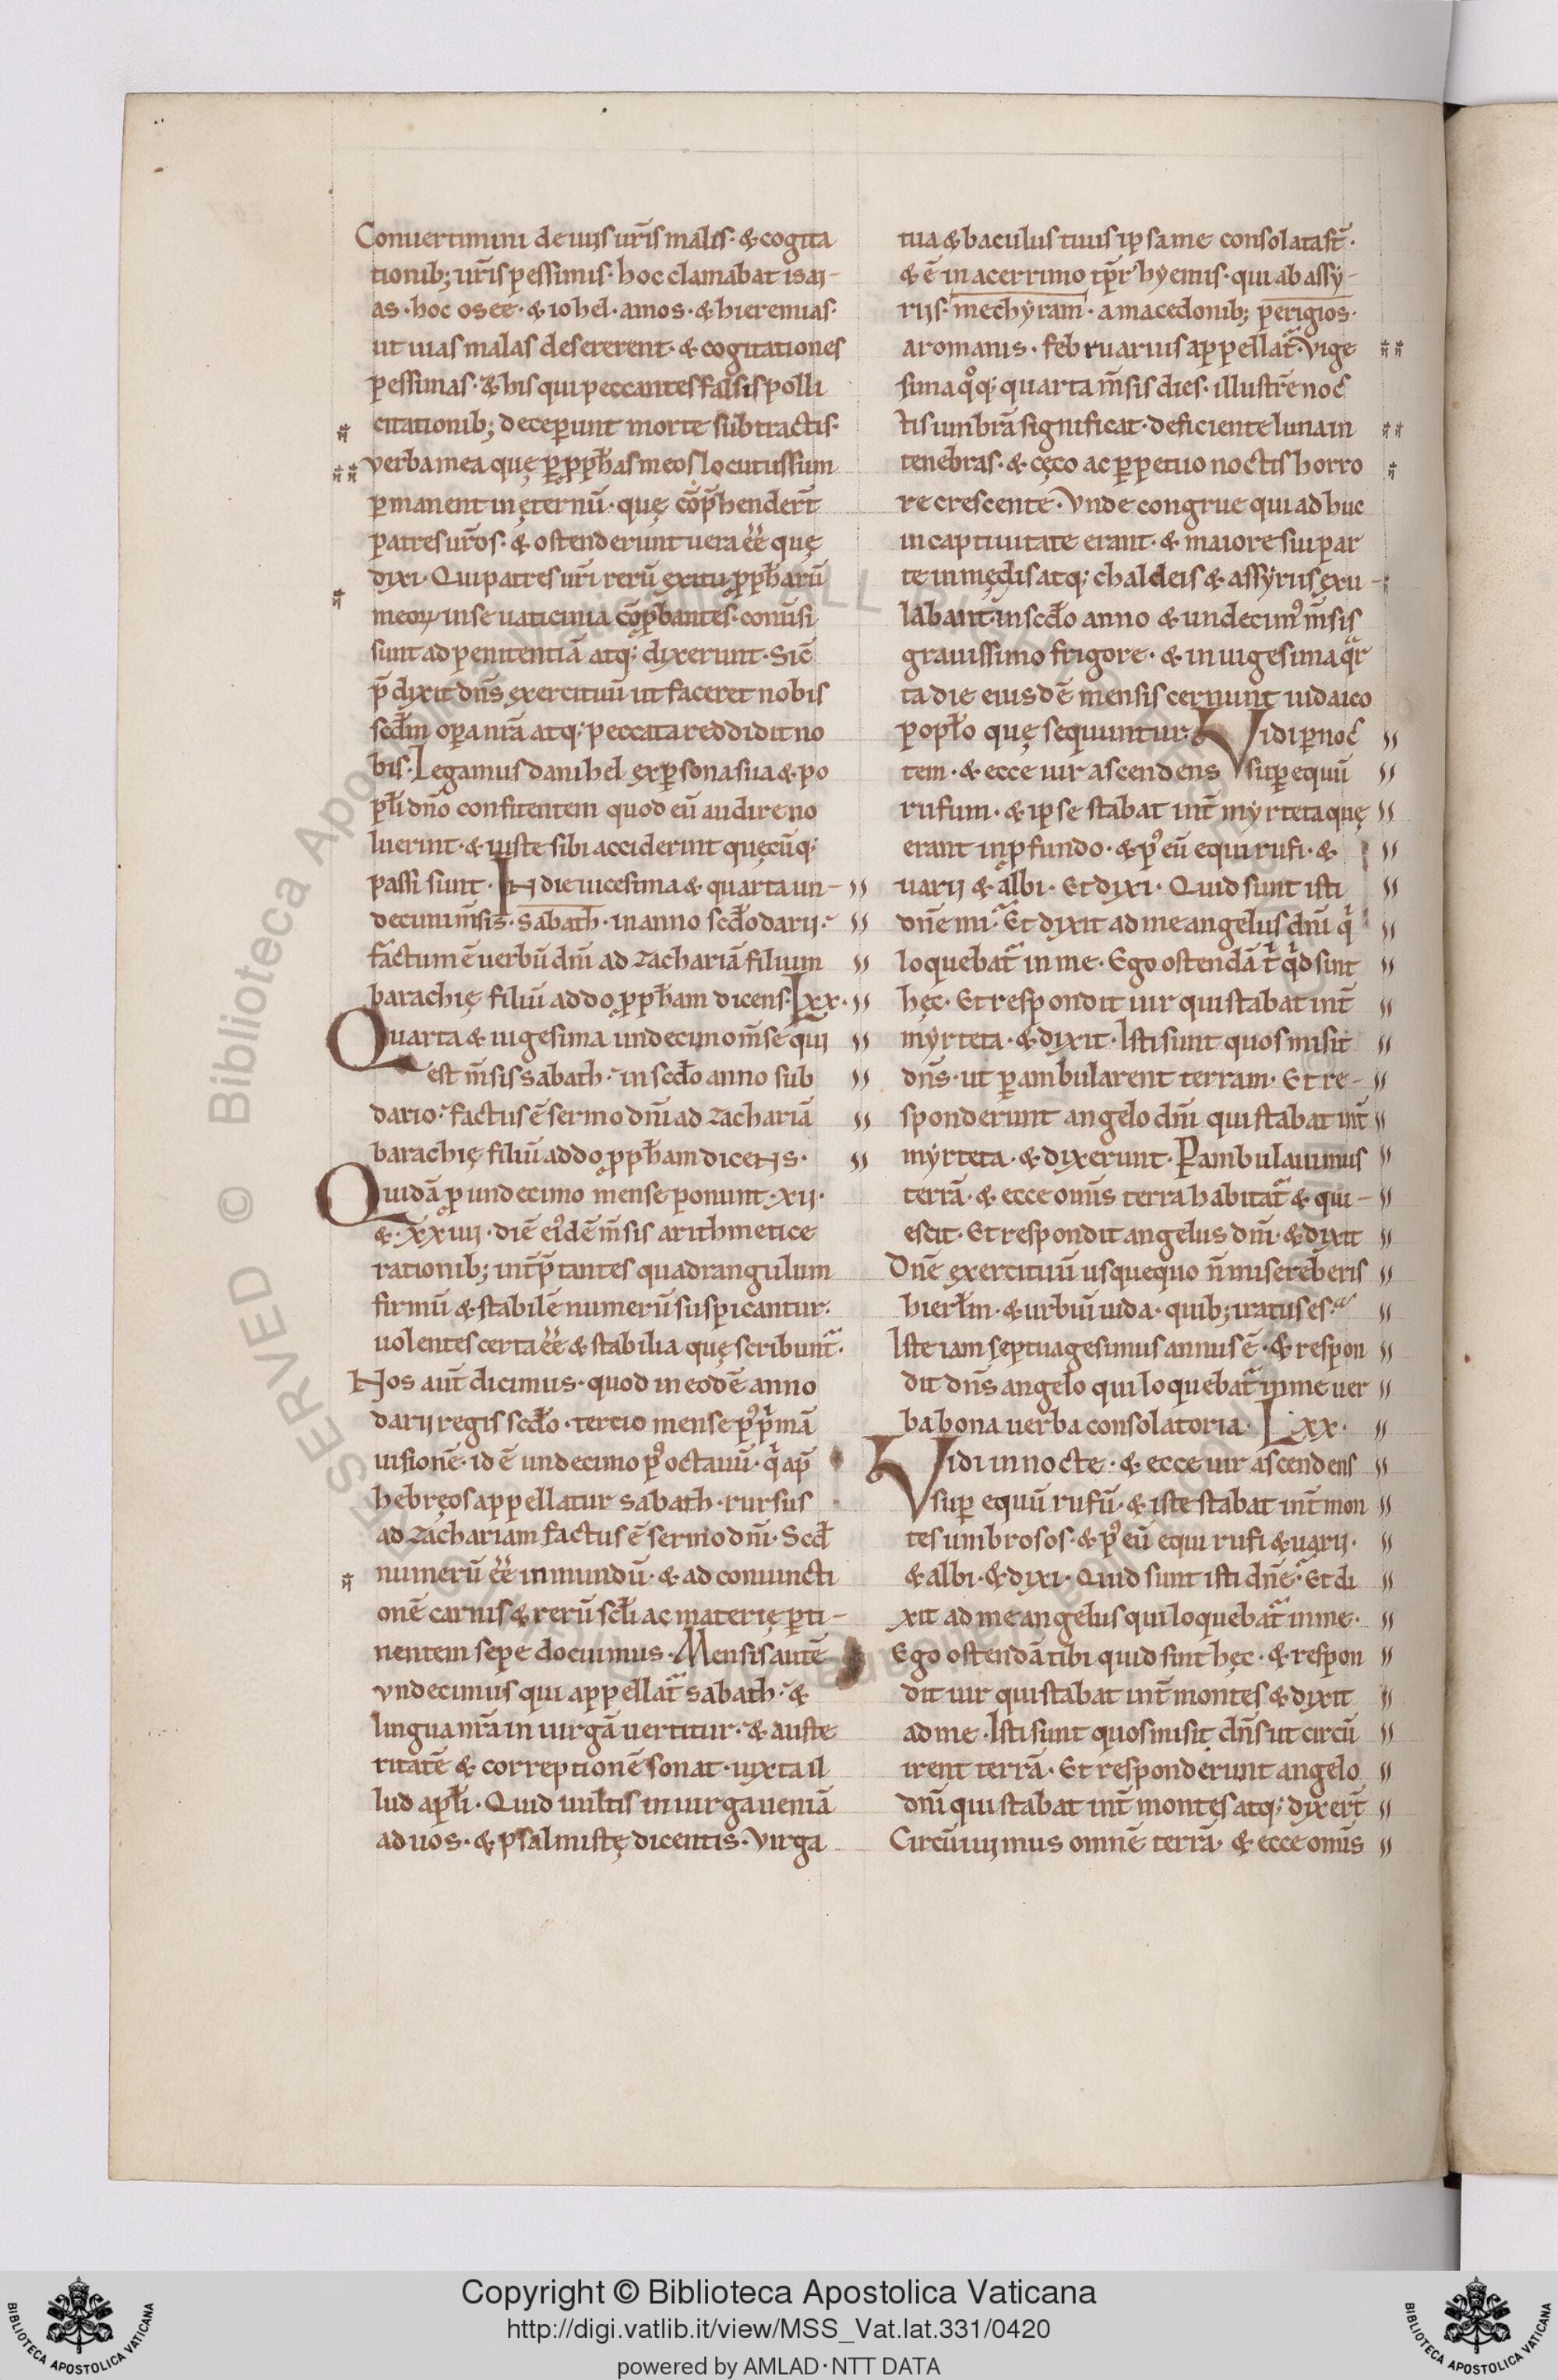 Conuertimini de uiis ur̄is malis· & cogita
tionib; ur̄is pessimis· hoc clamabat isai-
as· hoc osee· & iohel· amos· & hieremias·
ut uias malas desererent· & cogitationes
pessimas· & his qui peccantes falsis polli
citationib; deceperunt morte subtractis·
uerba mea quę p̱ pp̄has meos locutus sum
ꝑmanent in ęternū· quę cōp̄hendert̄
patres ur̄os· & ostenderunt uera eē quę
dixi· Qui patres ur̄i rerū exitu pp̄harū
meoꝝ in se uaticinia cōꝓbantes· conūsi
sunt ad penitentiā atq; dixerunt· Sic̄
p̄dixit dn̄s exercituū ut faceret nobis
scd̄m oꝑa nr̄a atq; peccata reddidit no
bis· Legamus danihel ex ꝑsona sua & po
pl̄i dn̄o confitentem quod eū audire no
luerint· & iuste sibi acciderint quęcūq;
passi sunt· In die uicesima & quarta un-
decimi m̄sis· sabath· in anno scd̄o darii·
factum ē uerbū dn̄i ad zachariā filium
barachię filiū addo pp̄ham dicens· Lxx·
Quarta & uigesima undecimo m̄se qui
est m̄sis sabath· in scd̄o anno sub
dario· factus ē sermo dn̄i ad zachariā
barachię filiū addo pp̄ham dicens·
Quidā ꝓ undecimo mense ponunt· xii·
&· xxiiii· diē eiꝰdē m̄sis arithmetice
rationib; int̄p̄tantes quadrangulum
firmū & stabilē numerū suspicantur·
uolentes certa eē & stabilia quę scribunt̄·
Nos aut̄ dicimus· quod in eodē anno
darii regis scd̄o· tercio mense pꝰ p̄mā
uisionē· id ē undecimo pꝰ octauū· qⁱ ap̄
hebręos appellatur sabath· rursus
ad zachariam factus ē sermo dn̄i· Scd̄
numerū eē inmundū· & ad coniuncti
onē carnis & rerū scl̄i ac materię ꝑti-
nentem sepe docuimus· Mensis autē
undecimus qui appellat̄ sabath· &
lingua nr̄a in uirgā uertitur· & auste
ritatē & correptionē sonat· iuxta il
lud apl̄i· Quid uultis in uirga ueniā
ad uos· & psalmistę dicentis· Virga
tua & baculus tuus ipsa me consolata st̄·
& ē in acerrimo tp̄r hyemis· qui ab assy-
riis· mechyram· a macedonib; perigios·
a romanis· februarius appellat̄· Vige
sima qͦq; quarta m̄sis dies· illustrē noc̄
tis umbrā significat· deficiente luna in
tenebras· & cęco ac ꝑpetuo noctis horro
re crescente· Vnde congrue qui adhuc
in captiuitate erant· & maiore sui par
te in mędis atq; chaldeis & assyriis exu-
labant· in scd̄o anno & undecimꝰ m̄sis
grauissimo frigore· & in uigesima qᵃr
ta die eiusdē mensis cernunt iudaico
popl̄o quę sequuntur· Vidi ꝑ noc̄
tem· & ecce uir ascendens suꝑ equū
rufum· & ipse stabat int̄ myrteta quę
erant in ꝓfundo· & pꝰ eū equi rufi· &
uarii & albi· Et dixi· Quid sunt isti
dn̄e mi· Et dixit ad me angelus dn̄i qⁱ
loquebat̄ in me· Ego ostendā tⁱ qⁱd sint
hęc· Et respondit uir qui stabat int̄
myrteta· & dixit· Isti sunt quos misit
dn̄s· ut ꝑambularent terram· Et re-
sponderunt angelo dn̄i qui stabat int̄
myrteta· & dixerunt· Ꝑambulauimus
terrā· & ecce omīs terra habitat̄ & qui-
escit· Et respondit angelus dn̄i· & dixit
Dn̄e exercituū usquequo n̄ misereberis
hierl̄m· & urbiū iuda· quib; iratus es·
Iste iam septuagesimus annus ē· & respon
dit dn̄s angelo qui loquebat̄ in me uer
ba bona uerba consolatoria· Lxx·
Vidi in nocte· & ecce uir ascendens
suꝑ equū rufū· & iste stabat int̄ mon
tes umbrosos· & pꝰ eū equi rufi & uarii·
& albi· & dixi· Quid sunt isti dn̄e· Et di
xit ad me angelus qui loquebat̄ in me·
Ego ostendā tibi quid sint hęc· & respon
dit uir qui stabat int̄ montes & dixit
ad me· Isti sunt quos misit dn̄s ut circū
irent terrā· Et responderunt angelo
dn̄i qui stabat int̄ montes atq; dixert̄
Circūiuimus omnē terrā· & ecce omīs
Copyright © Biblioteca Apostolica Vaticana
http://digi.vatlib.it/view/MSS_Vat.lat.331/0420
powered by AMLAD·NTT DATA
BIBLIOTECA APOSTOLICA VATICANA
BIBLIOTECA APOSTOLICA VATICANA